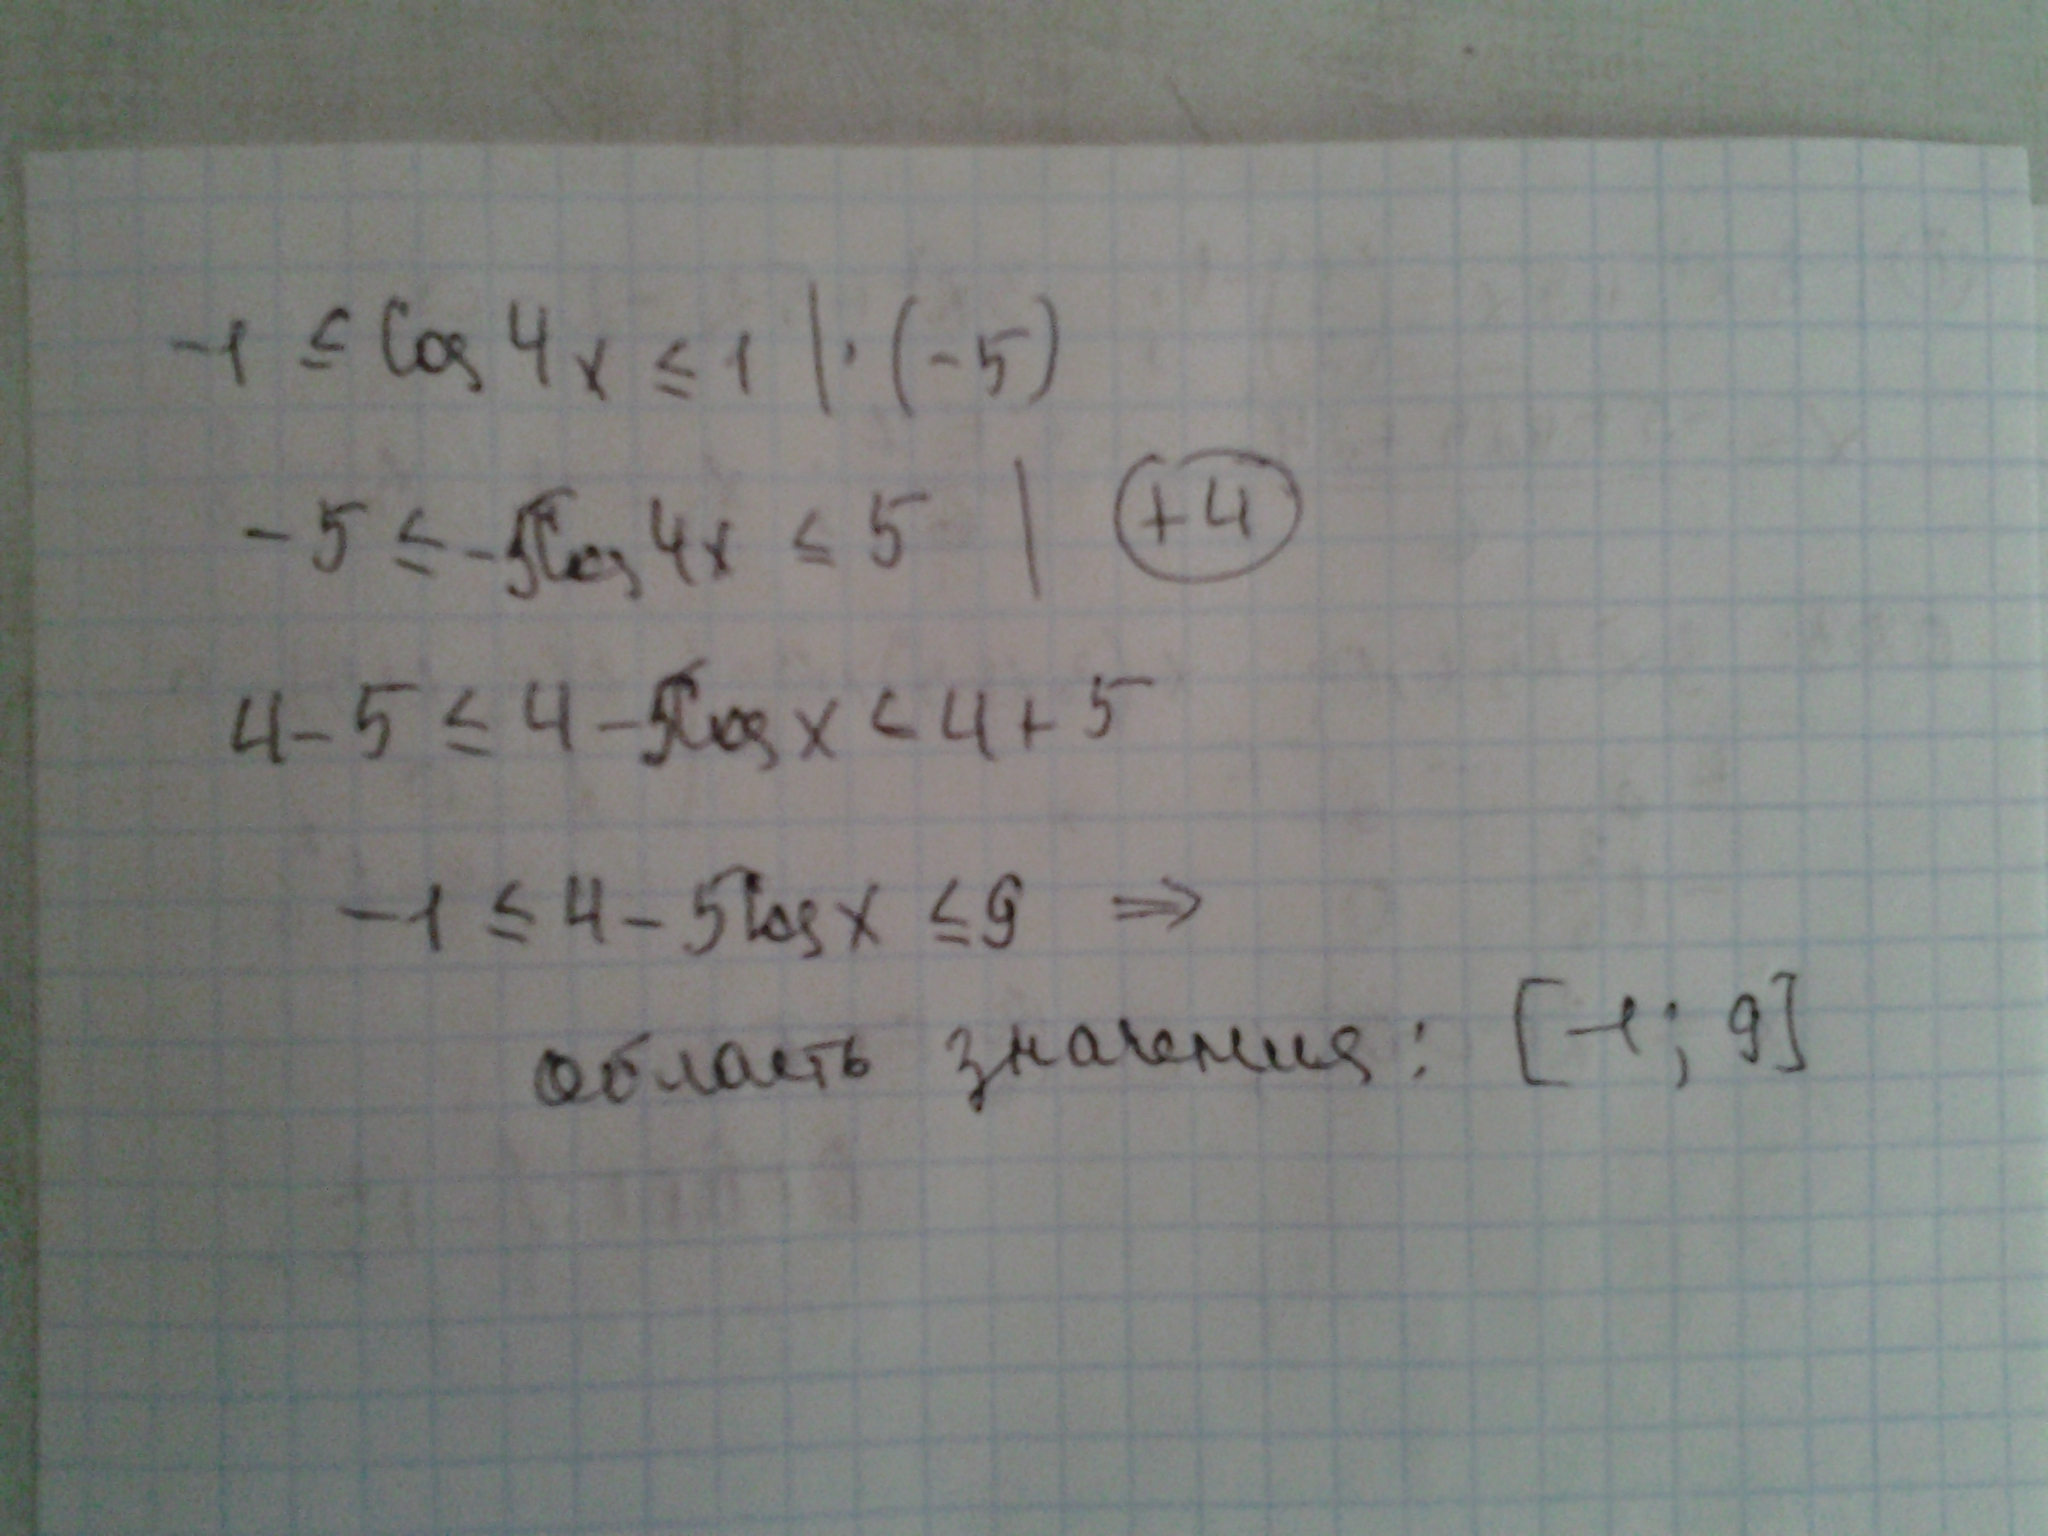 -1 ≤ cos 4x ≤ 1 | · (-5)
-5 ≤ -5cos 4x ≤ 5 | +4
4-5 ≤ 4-5cos x < 4+5
-1 ≤ 4-5cos x ≤ 9 ⇒
область значения: [-1; 9]